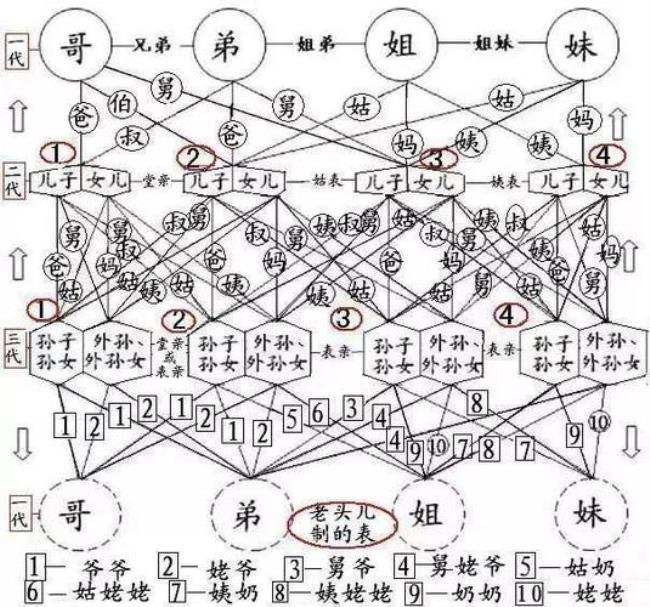 一代 哥 兄弟 弟 姐弟 姐 姐妹 妹
爸 伯 舅 舅 姑 姑
叔 爸 妈 姨 姨 妈
1 2 3 4
二代 儿子 女儿 堂亲 儿子 女儿 姑表 儿子 女儿 姨表 儿子 女儿
舅 叔 叔 舅 姨 叔 姑 姑 叔 姨
爸 妈 舅 爸 妈 爸 妈 伯 妈
姑 姑 姨 姑 姨 姨 姑 舅 姨 舅
1 2 3 4
三代 孙子 孙女 外孙、外孙女 堂亲或表亲 孙子 孙女 外孙、外孙女 表亲 孙子 孙女 外孙、外孙女 表亲 孙子 孙女 外孙、外孙女
1 2 1 2 1 2 1 2 5 6 3 4 4 8 9 10 7 8 7 9 10
一代 哥 弟 老头儿制的表 姐 妹
1—爷爷 2—姥爷 3—舅爷 4—舅姥爷 5—姑奶
6—姑姥姥 7—姨奶 8—姨姥姥 9—奶奶 10—姥姥